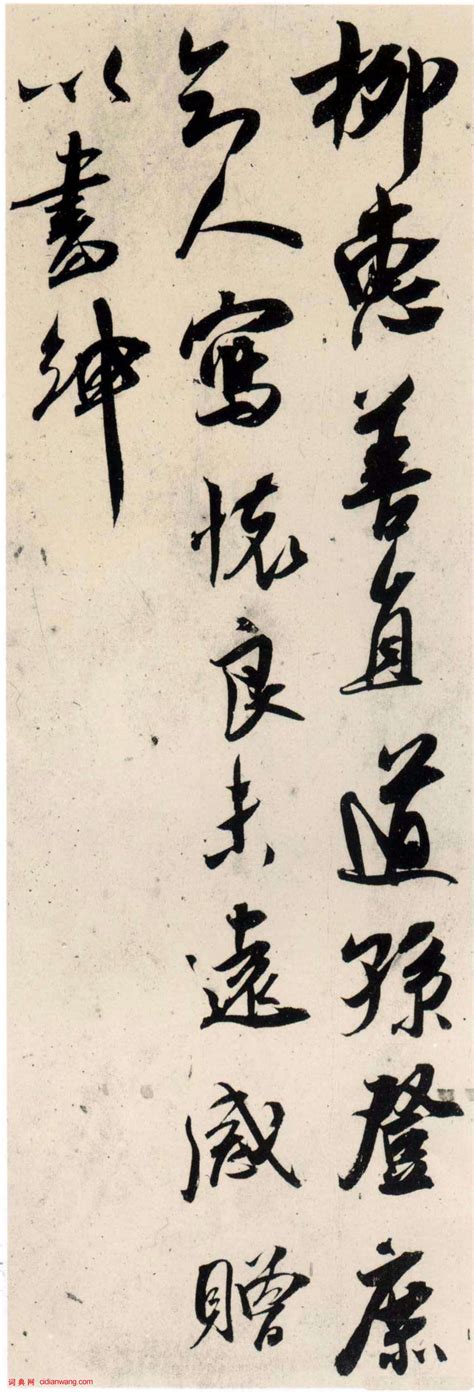 柳惠善直道孫登庶
知人寫懷良未遠感贈
以書紳
词典网 cidianwang.com